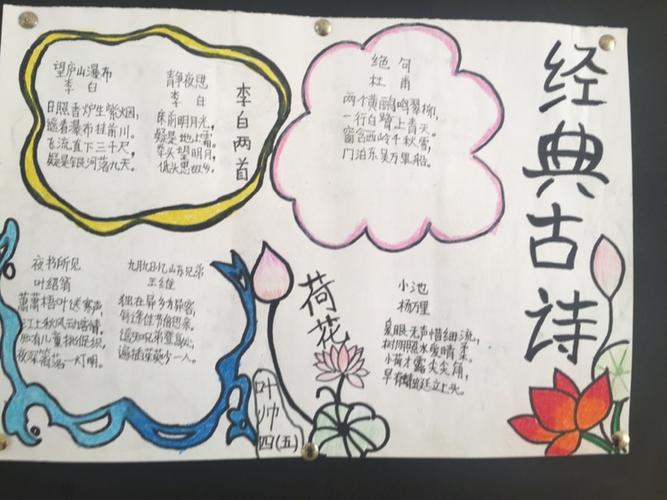 经典古诗
李白两首
望庐山瀑布
李白
日照香炉生紫烟,
遥看瀑布挂前川。
飞流直下三千尺,
疑是银河落九天。
静夜思
李白
床前明月光,
疑是地上霜。
举头望明月,
低头思故乡。
绝句
杜甫
两个黄鹂鸣翠柳,
一行白鹭上青天。
窗含西岭千秋雪,
门泊东吴万里船。
夜书所见
叶绍翁
萧萧梧叶送寒声,
江上秋风动客情。
知有儿童挑促织,
夜深篱落一灯明。
九月九日忆山东兄弟
王维
独在异乡为异客,
每逢佳节倍思亲。
遥知兄弟登高处,
遍插茱萸少一人。
荷花
小池
杨万里
泉眼无声惜细流,
树阴照水爱晴柔。
小荷才露尖尖角,
早有蜻蜓立上头。
叶帅
四(五)